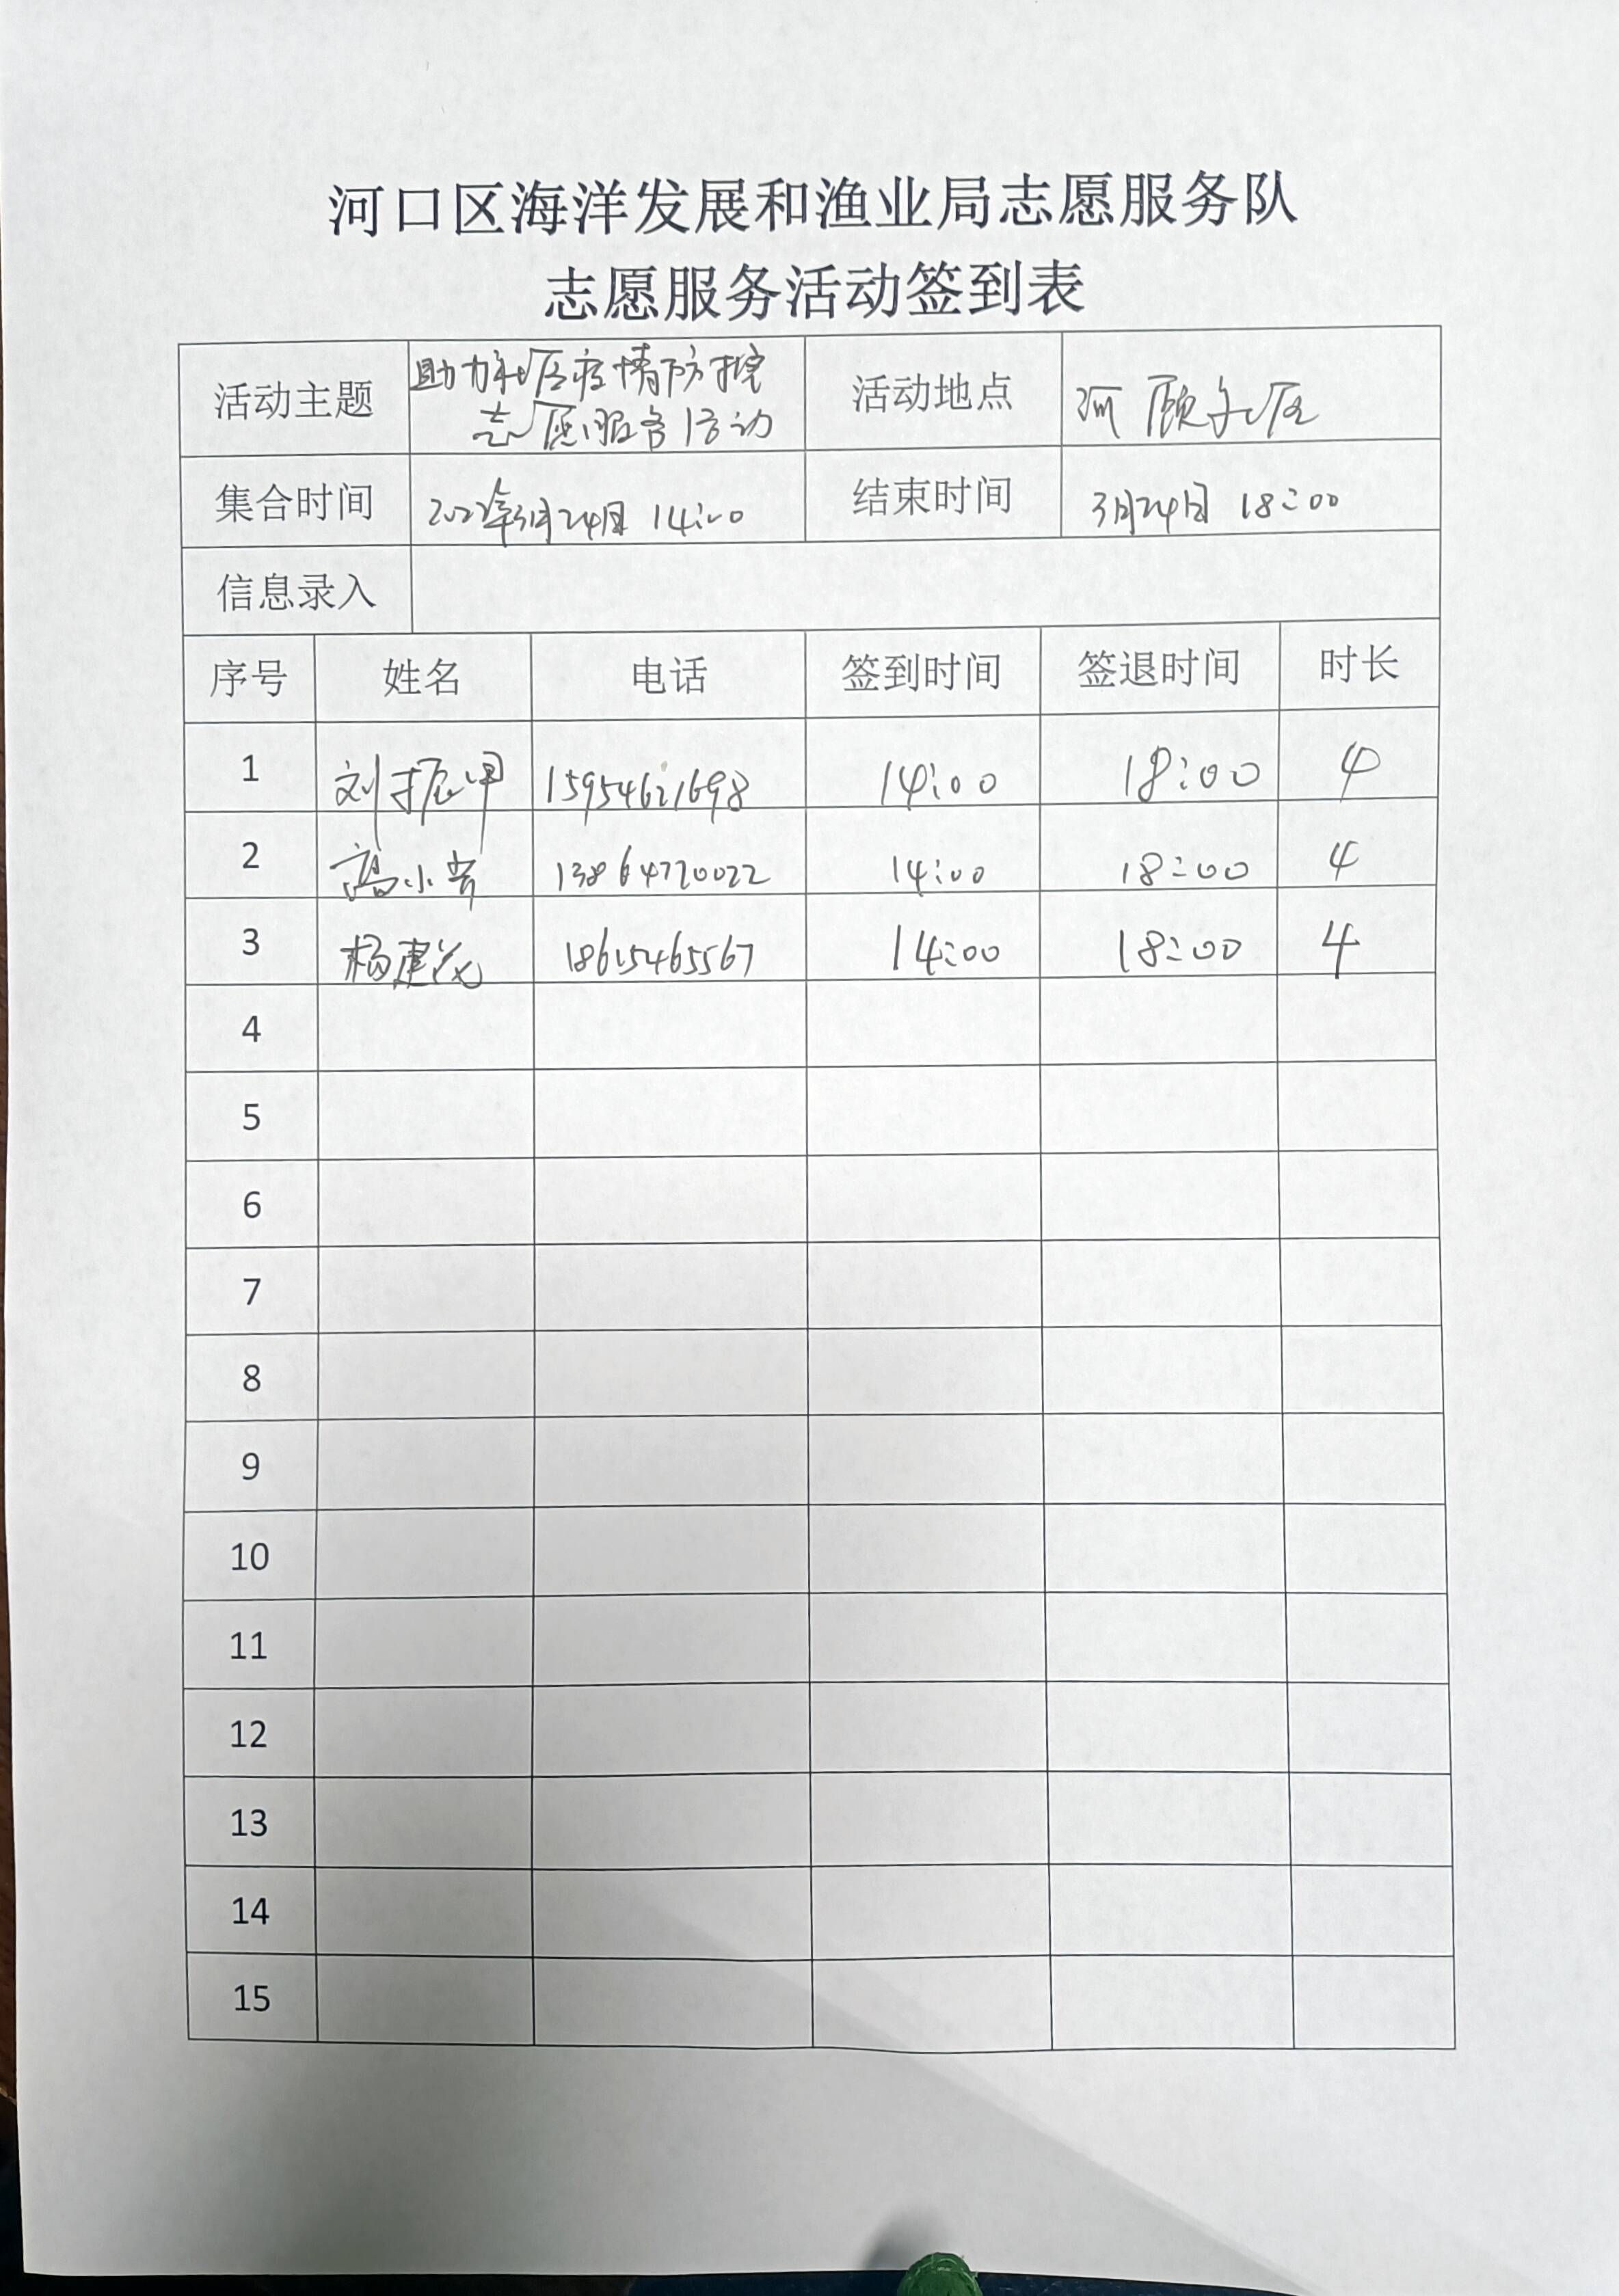 河口区海洋发展和渔业局志愿服务队
志愿服务活动签到表
活动主题 助力社区疫情防控 志愿服务活动 活动地点 河颐社区
集合时间 2022年3月24日 14:00 结束时间 3月24日 18:00
信息录入
序号 姓名 电话 签到时间 签退时间 时长
1 刘振甲 15954621698 14:00 18:00 4
2 高小芳 13864770022 14:00 18:00 4
3 杨建茂 18615465567 14:00 18:00 4
4
5
6
7
8
9
10
11
12
13
14
15